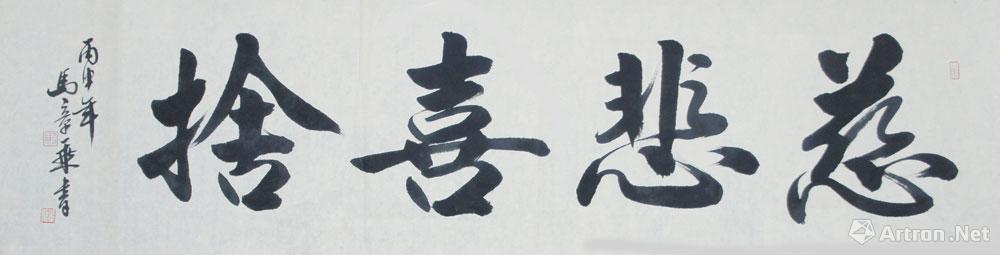 慈悲喜捨
丙申年
馬章乘書
Artron.Net